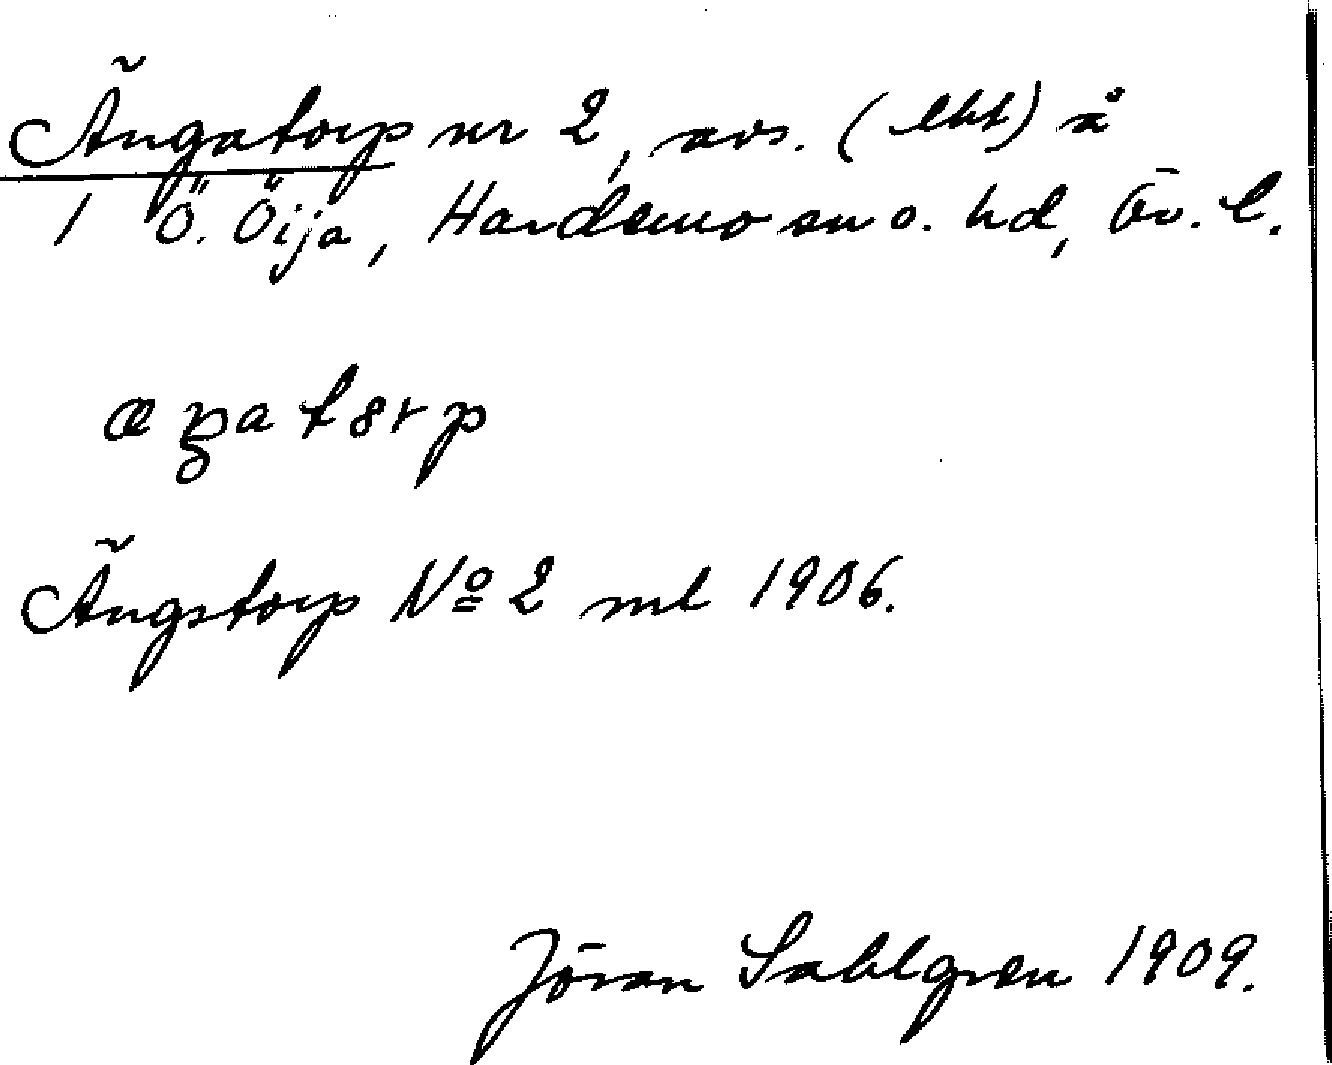 Ängatorp nr 2, avs. (lht) å
1 Ö. Öija, Hardemo sn o. hd, Ör. l.
æŋatɜrp
Ängstorp Nº 2 ml 1906.
Jöran Sahlgren 1909.